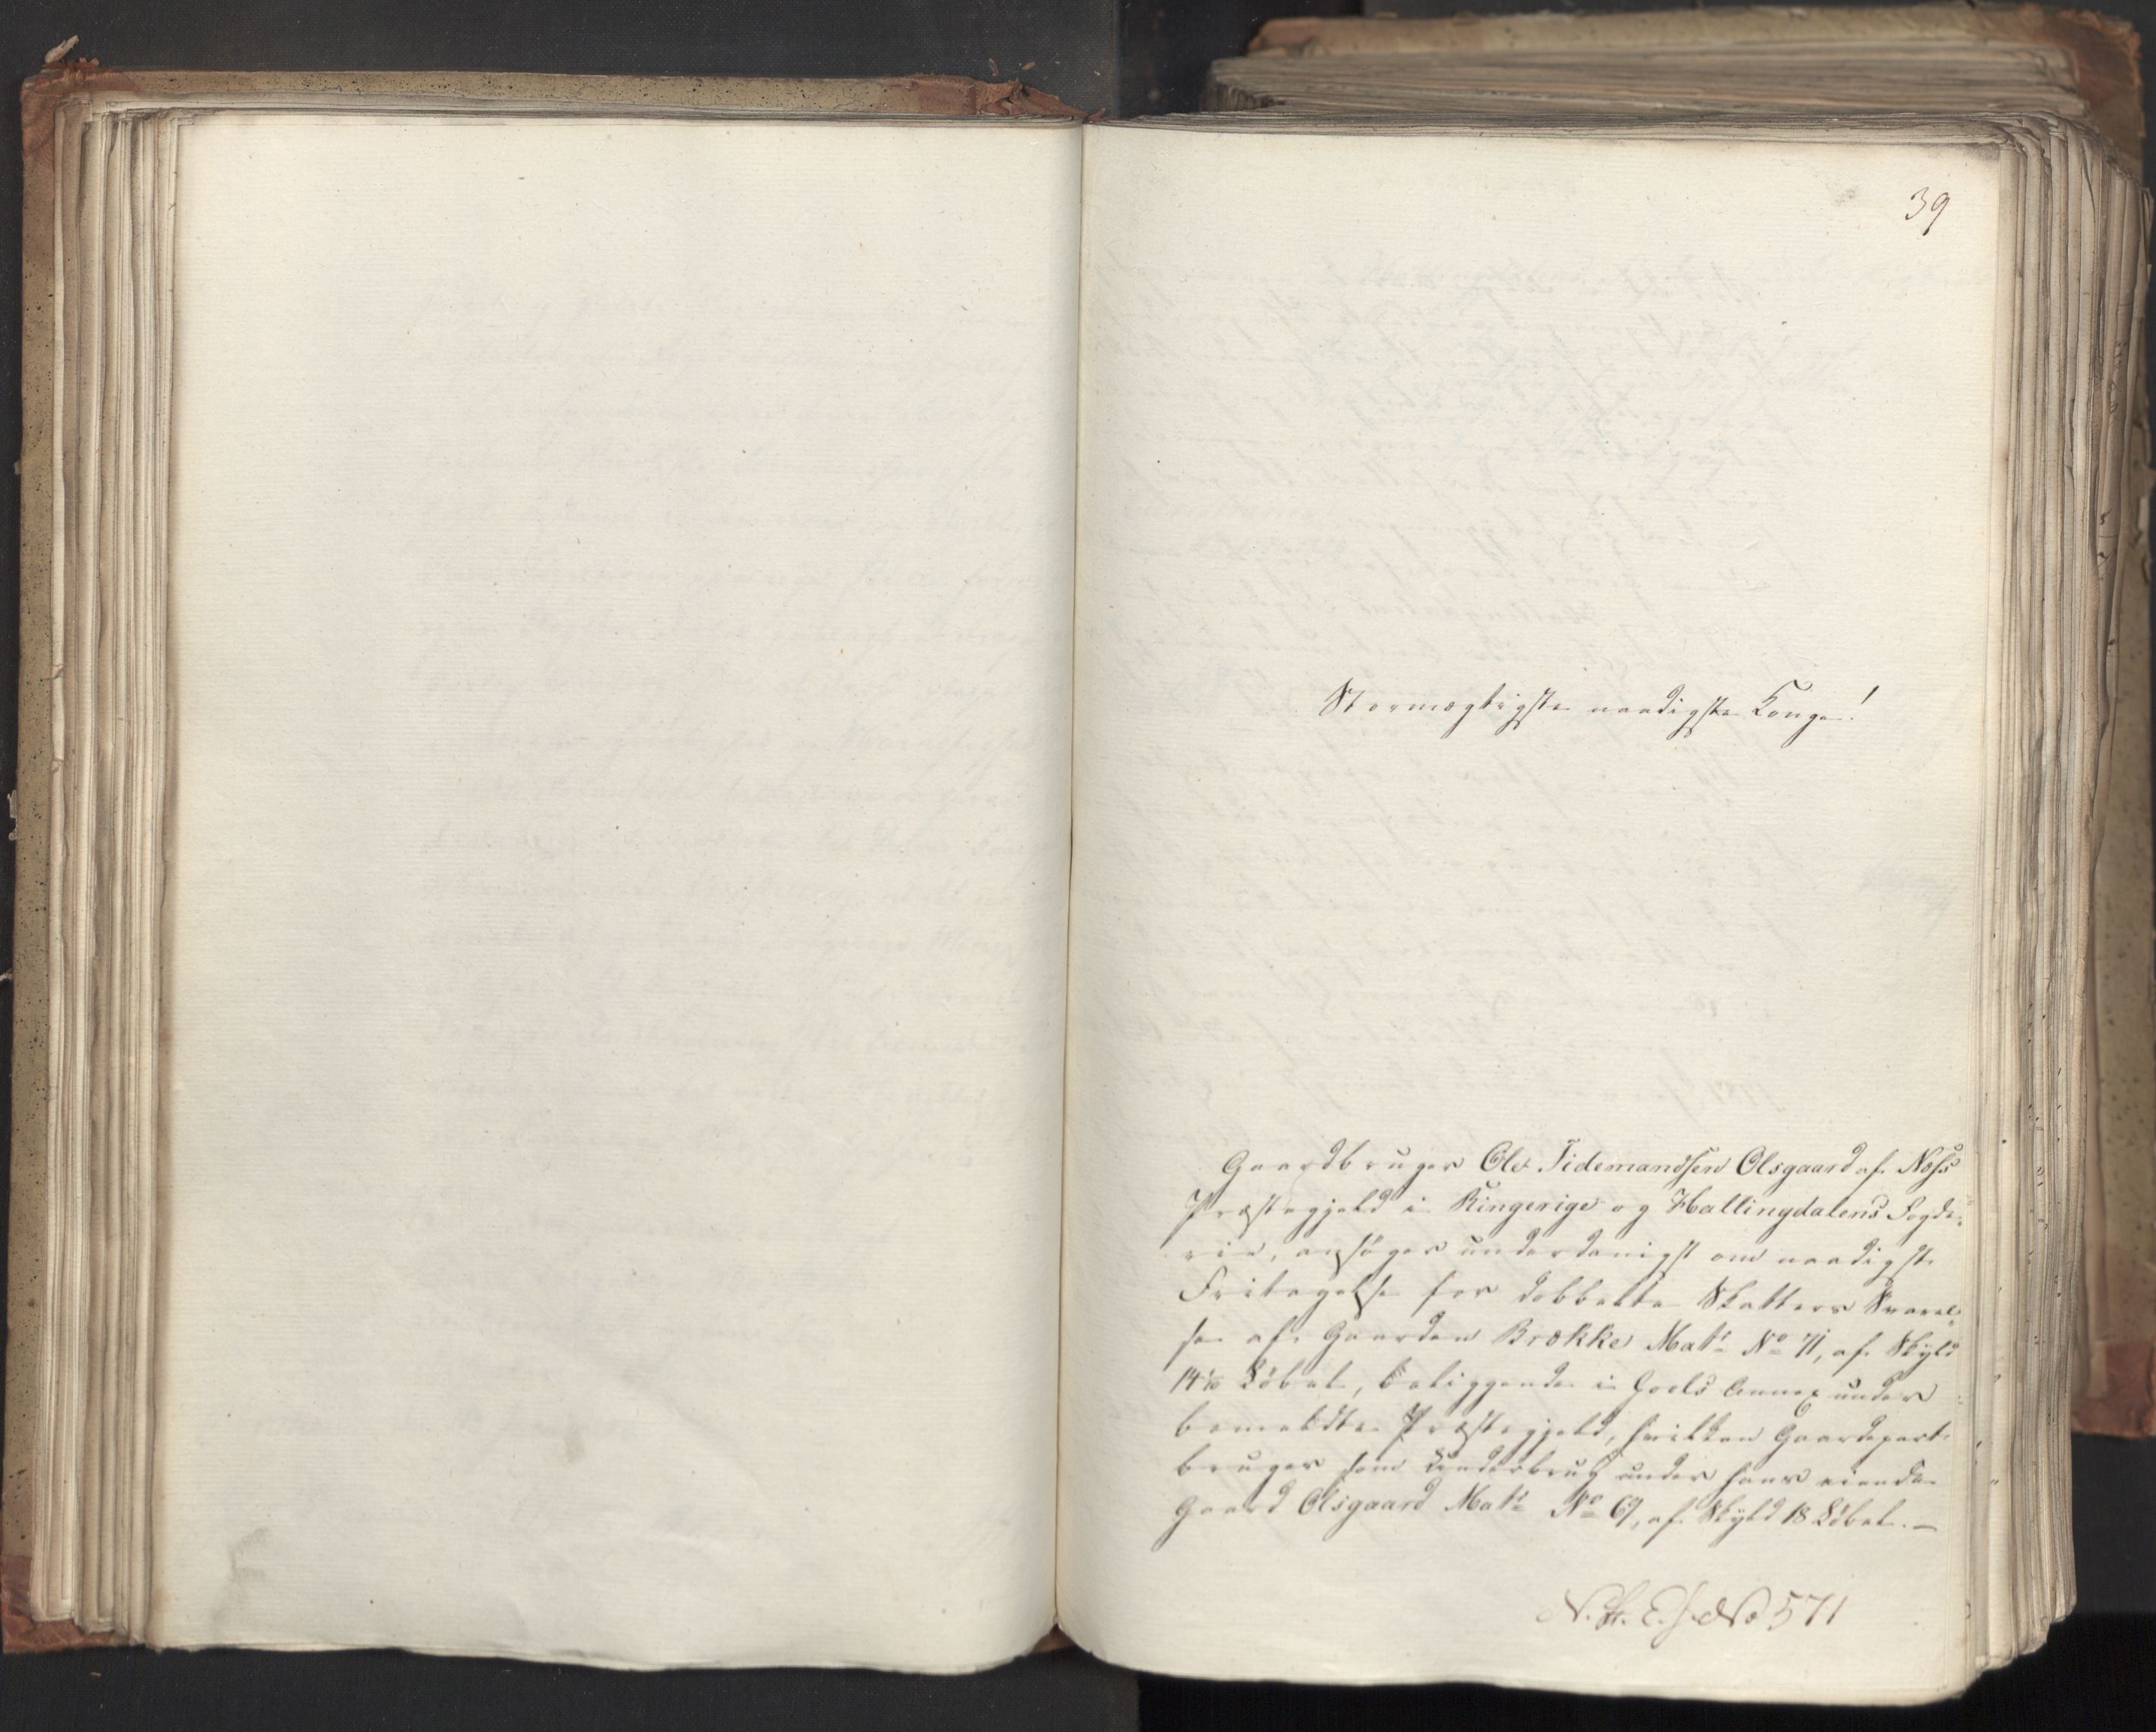 39
Stormægtigste naadigste Konge!
Gaardbruger Ole Tidemandsen Olsgaard af Næss
Præstegjeld i Ringerige og Hallingdalens Fogde-
rie, ansøger underdanigst om naadigste
Fritagelse for dobbelte Skatters Svarel-
se af Gaarden Brække Matr No 71, af Skyld
14 1/10 Løbel, beliggende i Goels Annex under
bemeldte Præstegjeld, hvilken Gaardepart
bruges som Underbrug under hans eiende
Gaard Olsgaard Matr No 69, af Skyld 18 Løbel. —
No 571